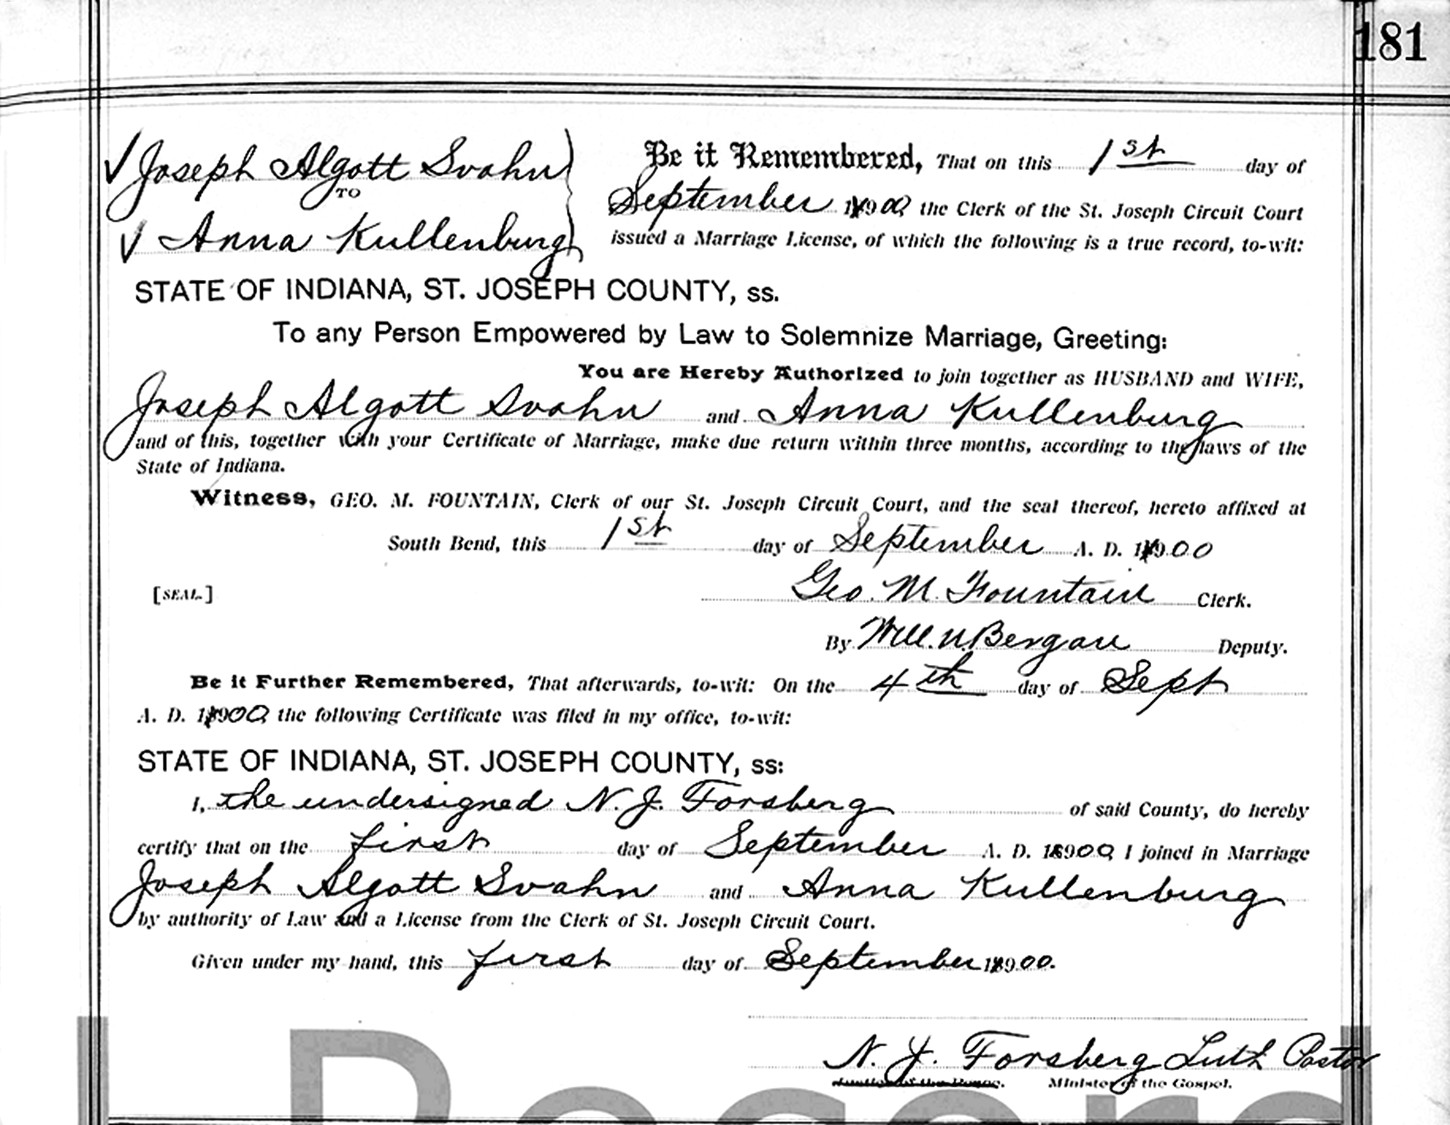 181
Joseph Algott Svahn
TO
Anna Kullenburg
Be it Remembered, That on this 1st day of
September 1900 the Clerk of the St. Joseph Circuit Court
issued a Marriage License, of which the following is a true record, to-wit:
STATE OF INDIANA, ST. JOSEPH COUNTY, ss.
To any Person Empowered by Law to Solemnize Marriage, Greeting:
You are Hereby Authorized to join together as HUSBAND and WIFE,
Joseph Algott Svahn and Anna Kullenburg
and of this, together with your Certificate of Marriage, make due return within three months, according to the laws of the
State of Indiana.
Witness, GEO. M. FOUNTAIN, Clerk of our St. Joseph Circuit Court, and the seal thereof, hereto affixed at
South Bend, this 1st day of September A. D. 1900
[SEAL.] Geo. M. Fountain Clerk.
By Will. N. Bergan Deputy.
Be it Further Remembered, That afterwards, to-wit: On the 4th day of Sept
A. D. 1900 the following Certificate was filed in my office, to-wit:
STATE OF INDIANA, ST. JOSEPH COUNTY, ss:
I, the undersigned N. J. Forsberg of said County, do hereby
certify that on the first day of September A. D. 1900 I joined in Marriage
Joseph Algott Svahn and Anna Kullenburg
by authority of Law and a License from the Clerk of St. Joseph Circuit Court.
Given under my hand, this first day of September 1900.
N. J. Forsberg Luth Pastor
Justice of the Peace. Minister of the Gospel.